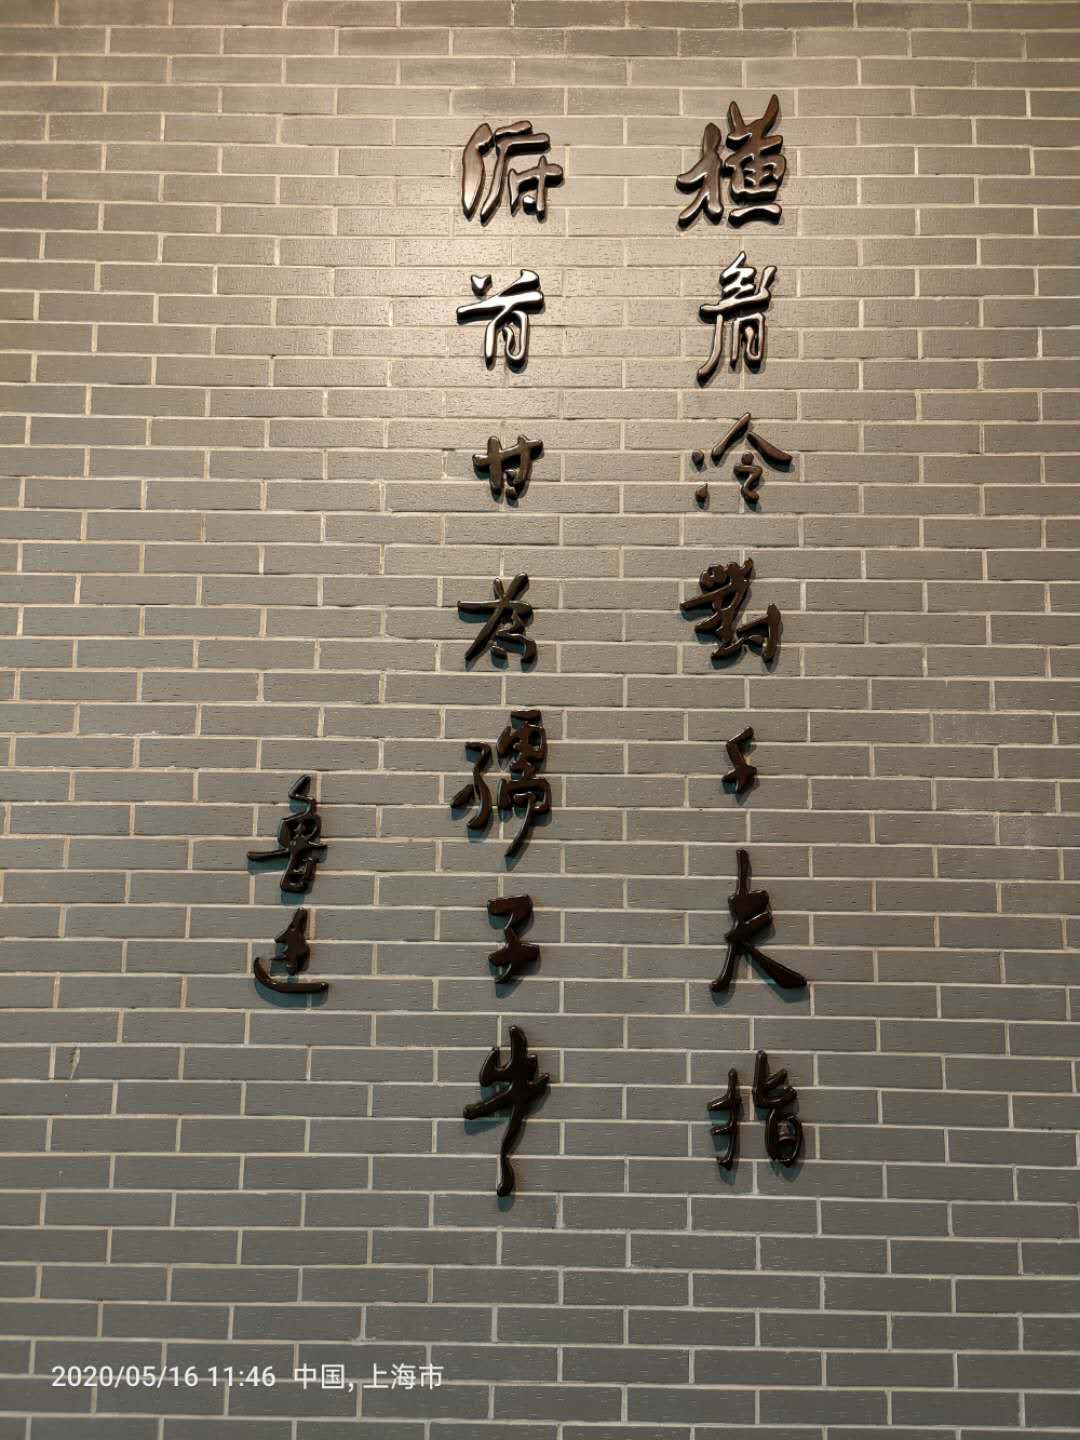 橫眉冷對千夫指
俯首甘為孺子牛
魯迅
2020/05/16 11:46 中国, 上海市